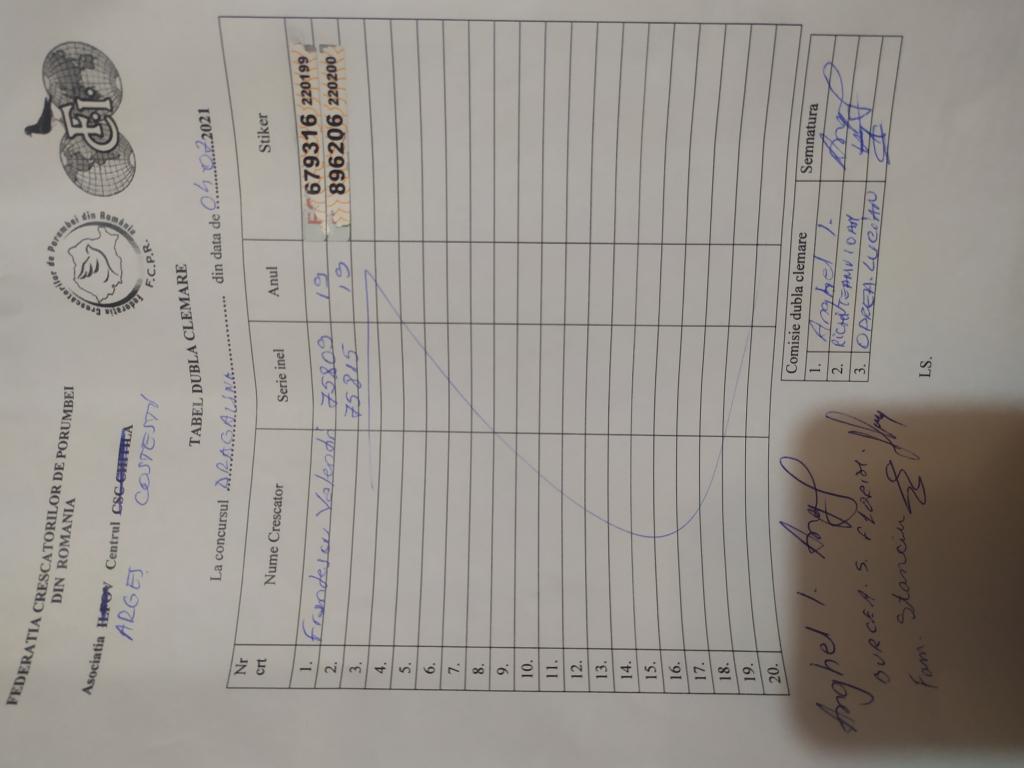 FEDERATIA CRESCATORILOR DE PORUMBEI
DIN ROMANIA
Asociatia ILFOV Centrul CSC CHITILA
ARGEȘ COSTESTI
Federatia Crescatorilor de Porumbei din România
F.C.P.R.
TABEL DUBLA CLEMARE
La concursul DRAGALINA din data de 04.07.2021
Nr crt Nume Crescator Serie inel Anul Stiker
1. 75809 19 679316 220199
2. 75815 19 896206 220200
3.
4.
5.
6.
7.
8.
9.
10.
11.
12.
13.
14.
15.
16.
17.
18.
19.
20.
Comisie dubla clemare Semnatura
1. Anghel I.
2.
3. OPREA LUCIAN
I.S.
Anghel I.
DURCEA S. FLORIN.
Fam. Stanciu